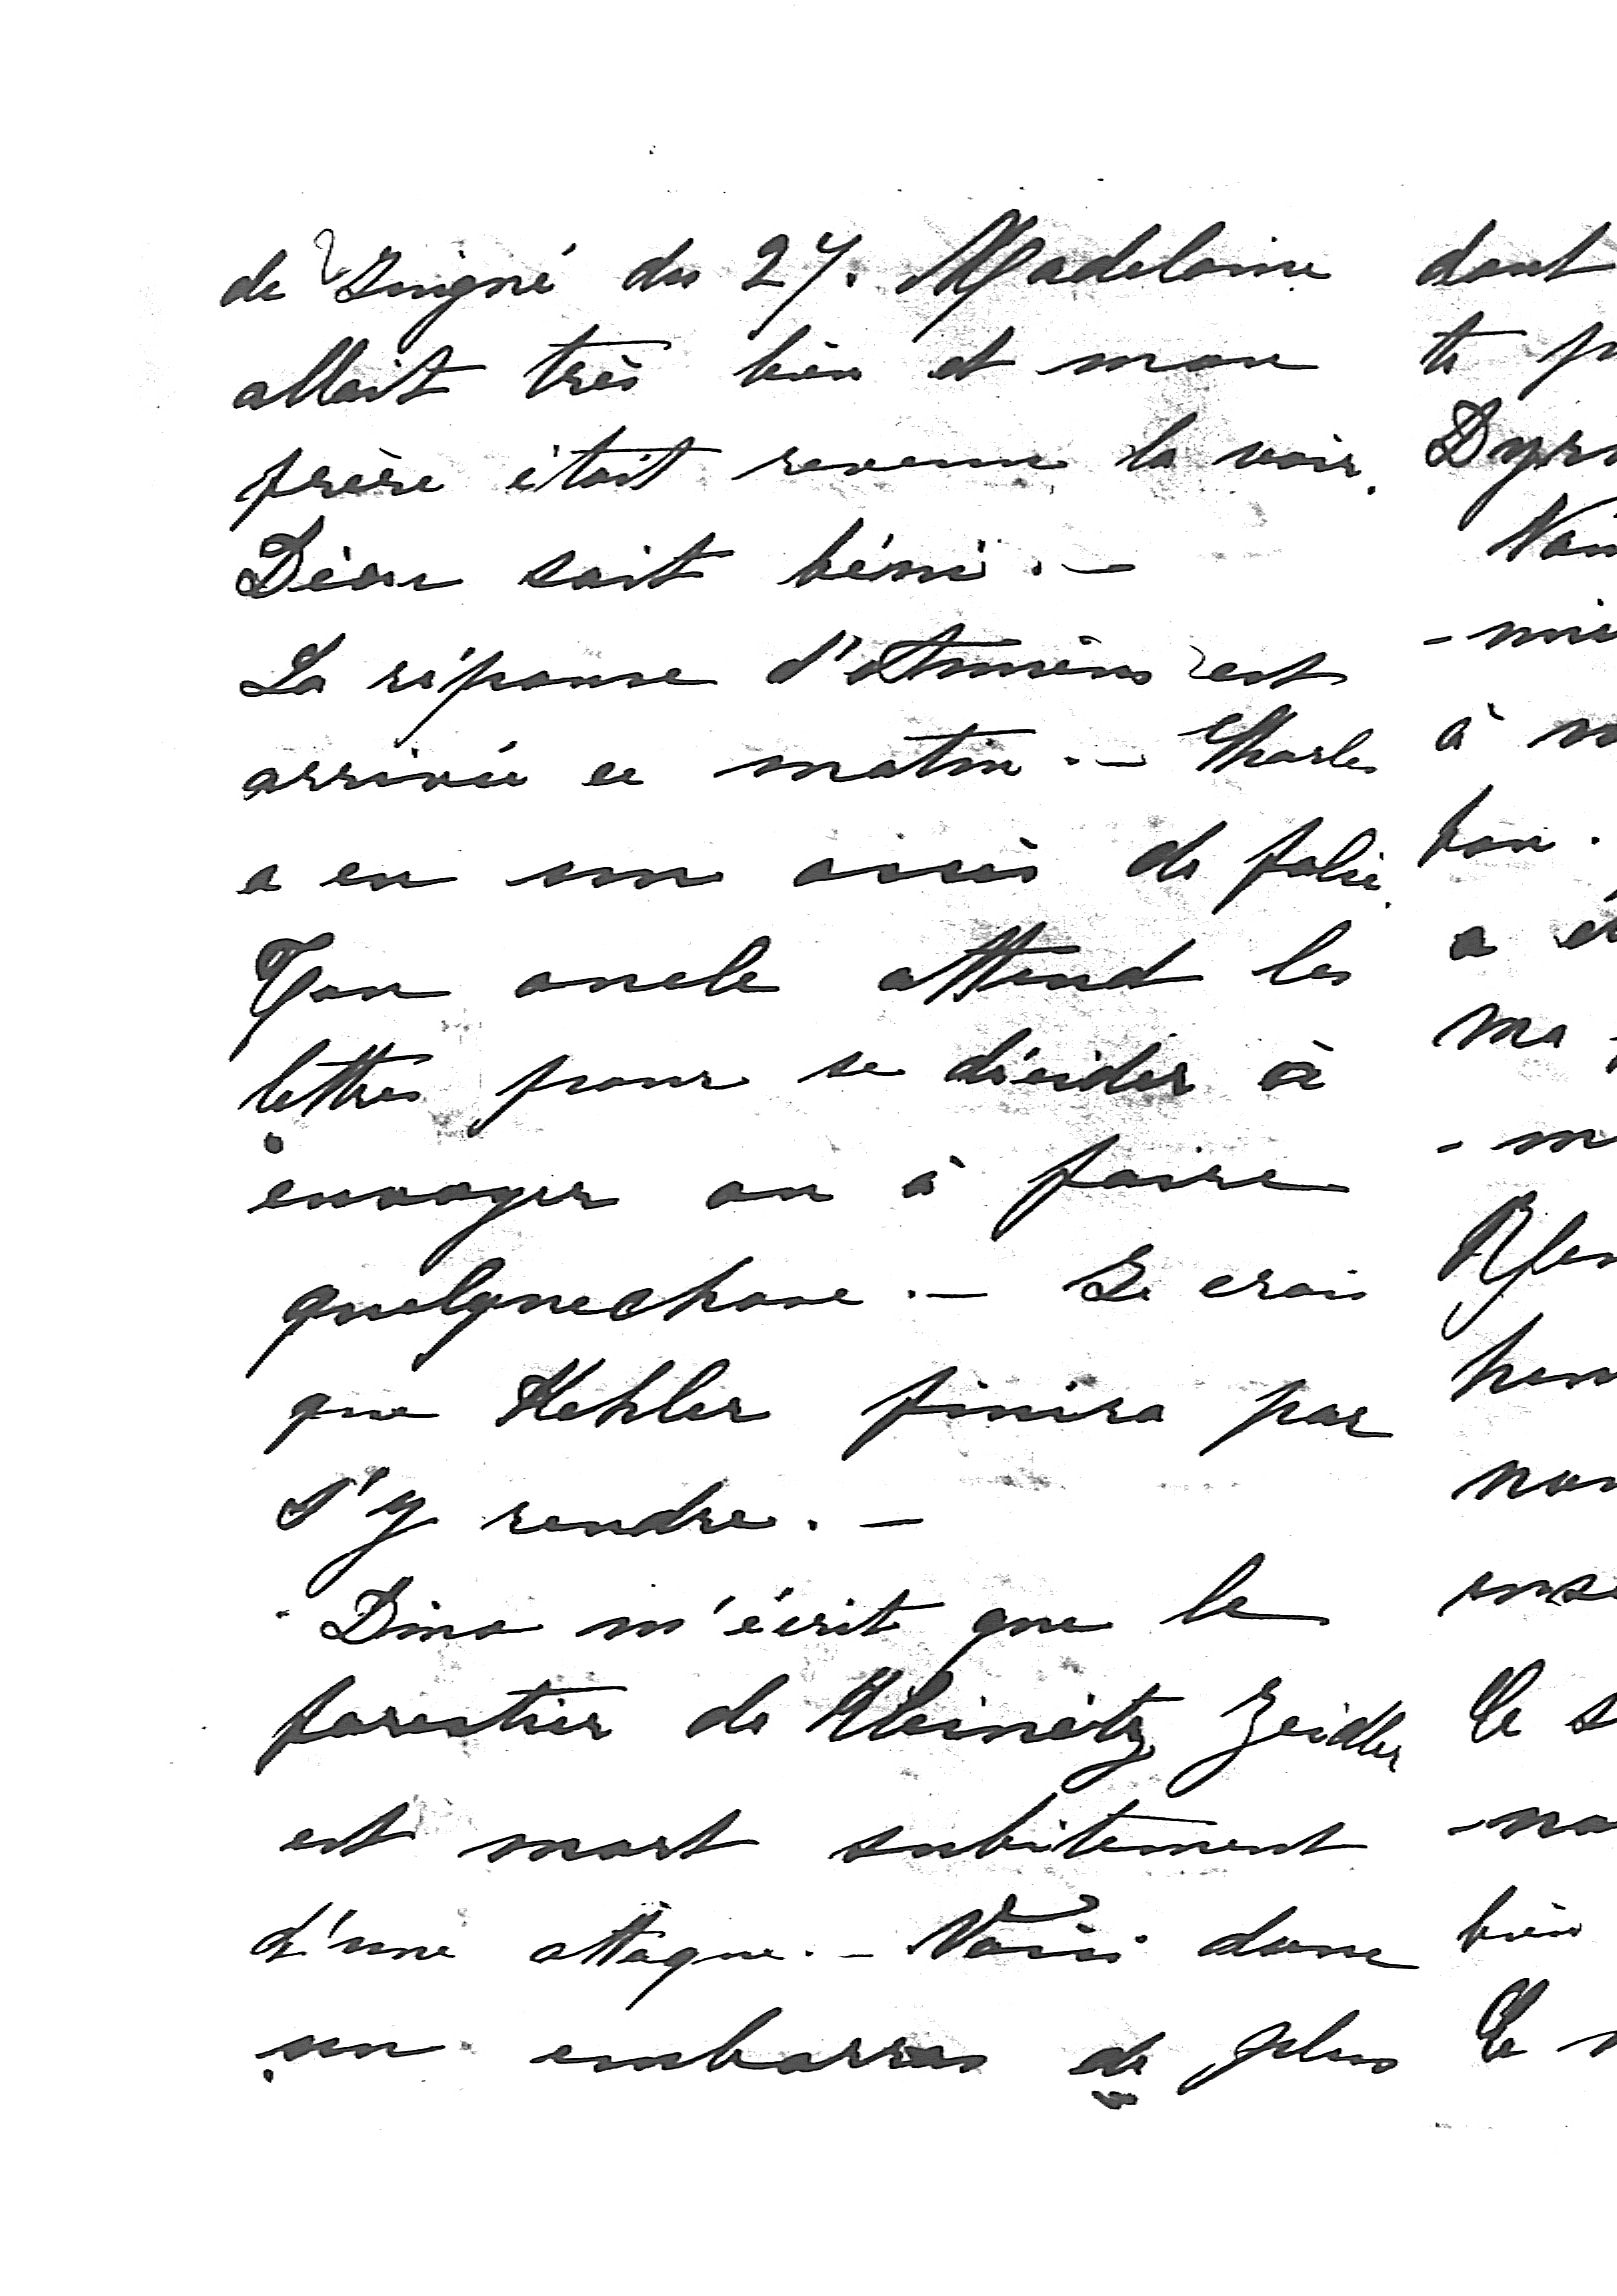 de Juigné du 27. Madeleine
allait très bien et mon
frère était revenu la voir.
Dieu soit béni. —
La réponse d'Amiens est
arrivée ce matin. — Charles
a eu un accès de folie.
Ton oncle attend les
lettres pour se décider à
envoyer ou à faire
quelquechose. — Je crois
que Kehler finira par
s'y rendre. —
Dino m'écrit que le
forestier de Kleinitz Zeidler
est mort subitement
d'une attaque. — Voici donc
un embarras de plus
dont
à
bon.
a
ma
bien